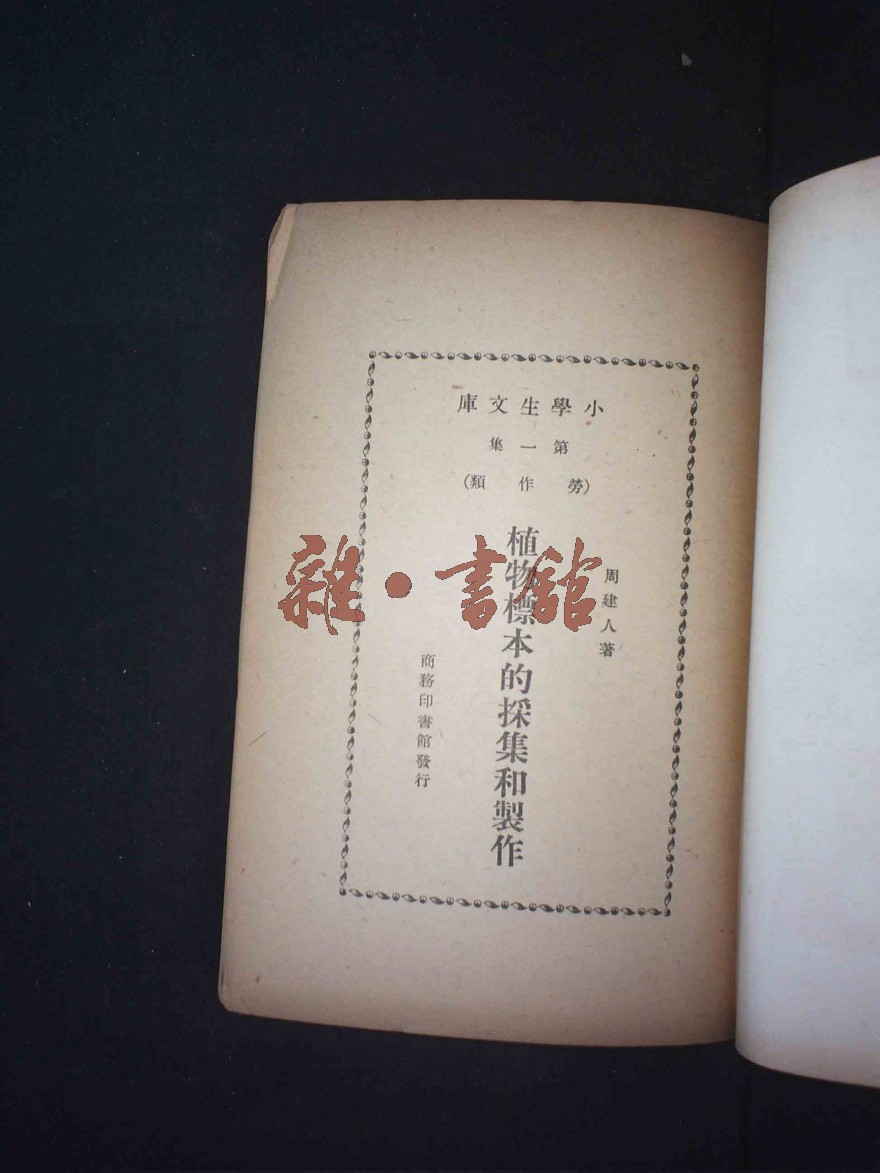 小學生文庫
第一集
(勞作類)
周建人著
植物標本的採集和製作
商務印書館發行
雜·書館